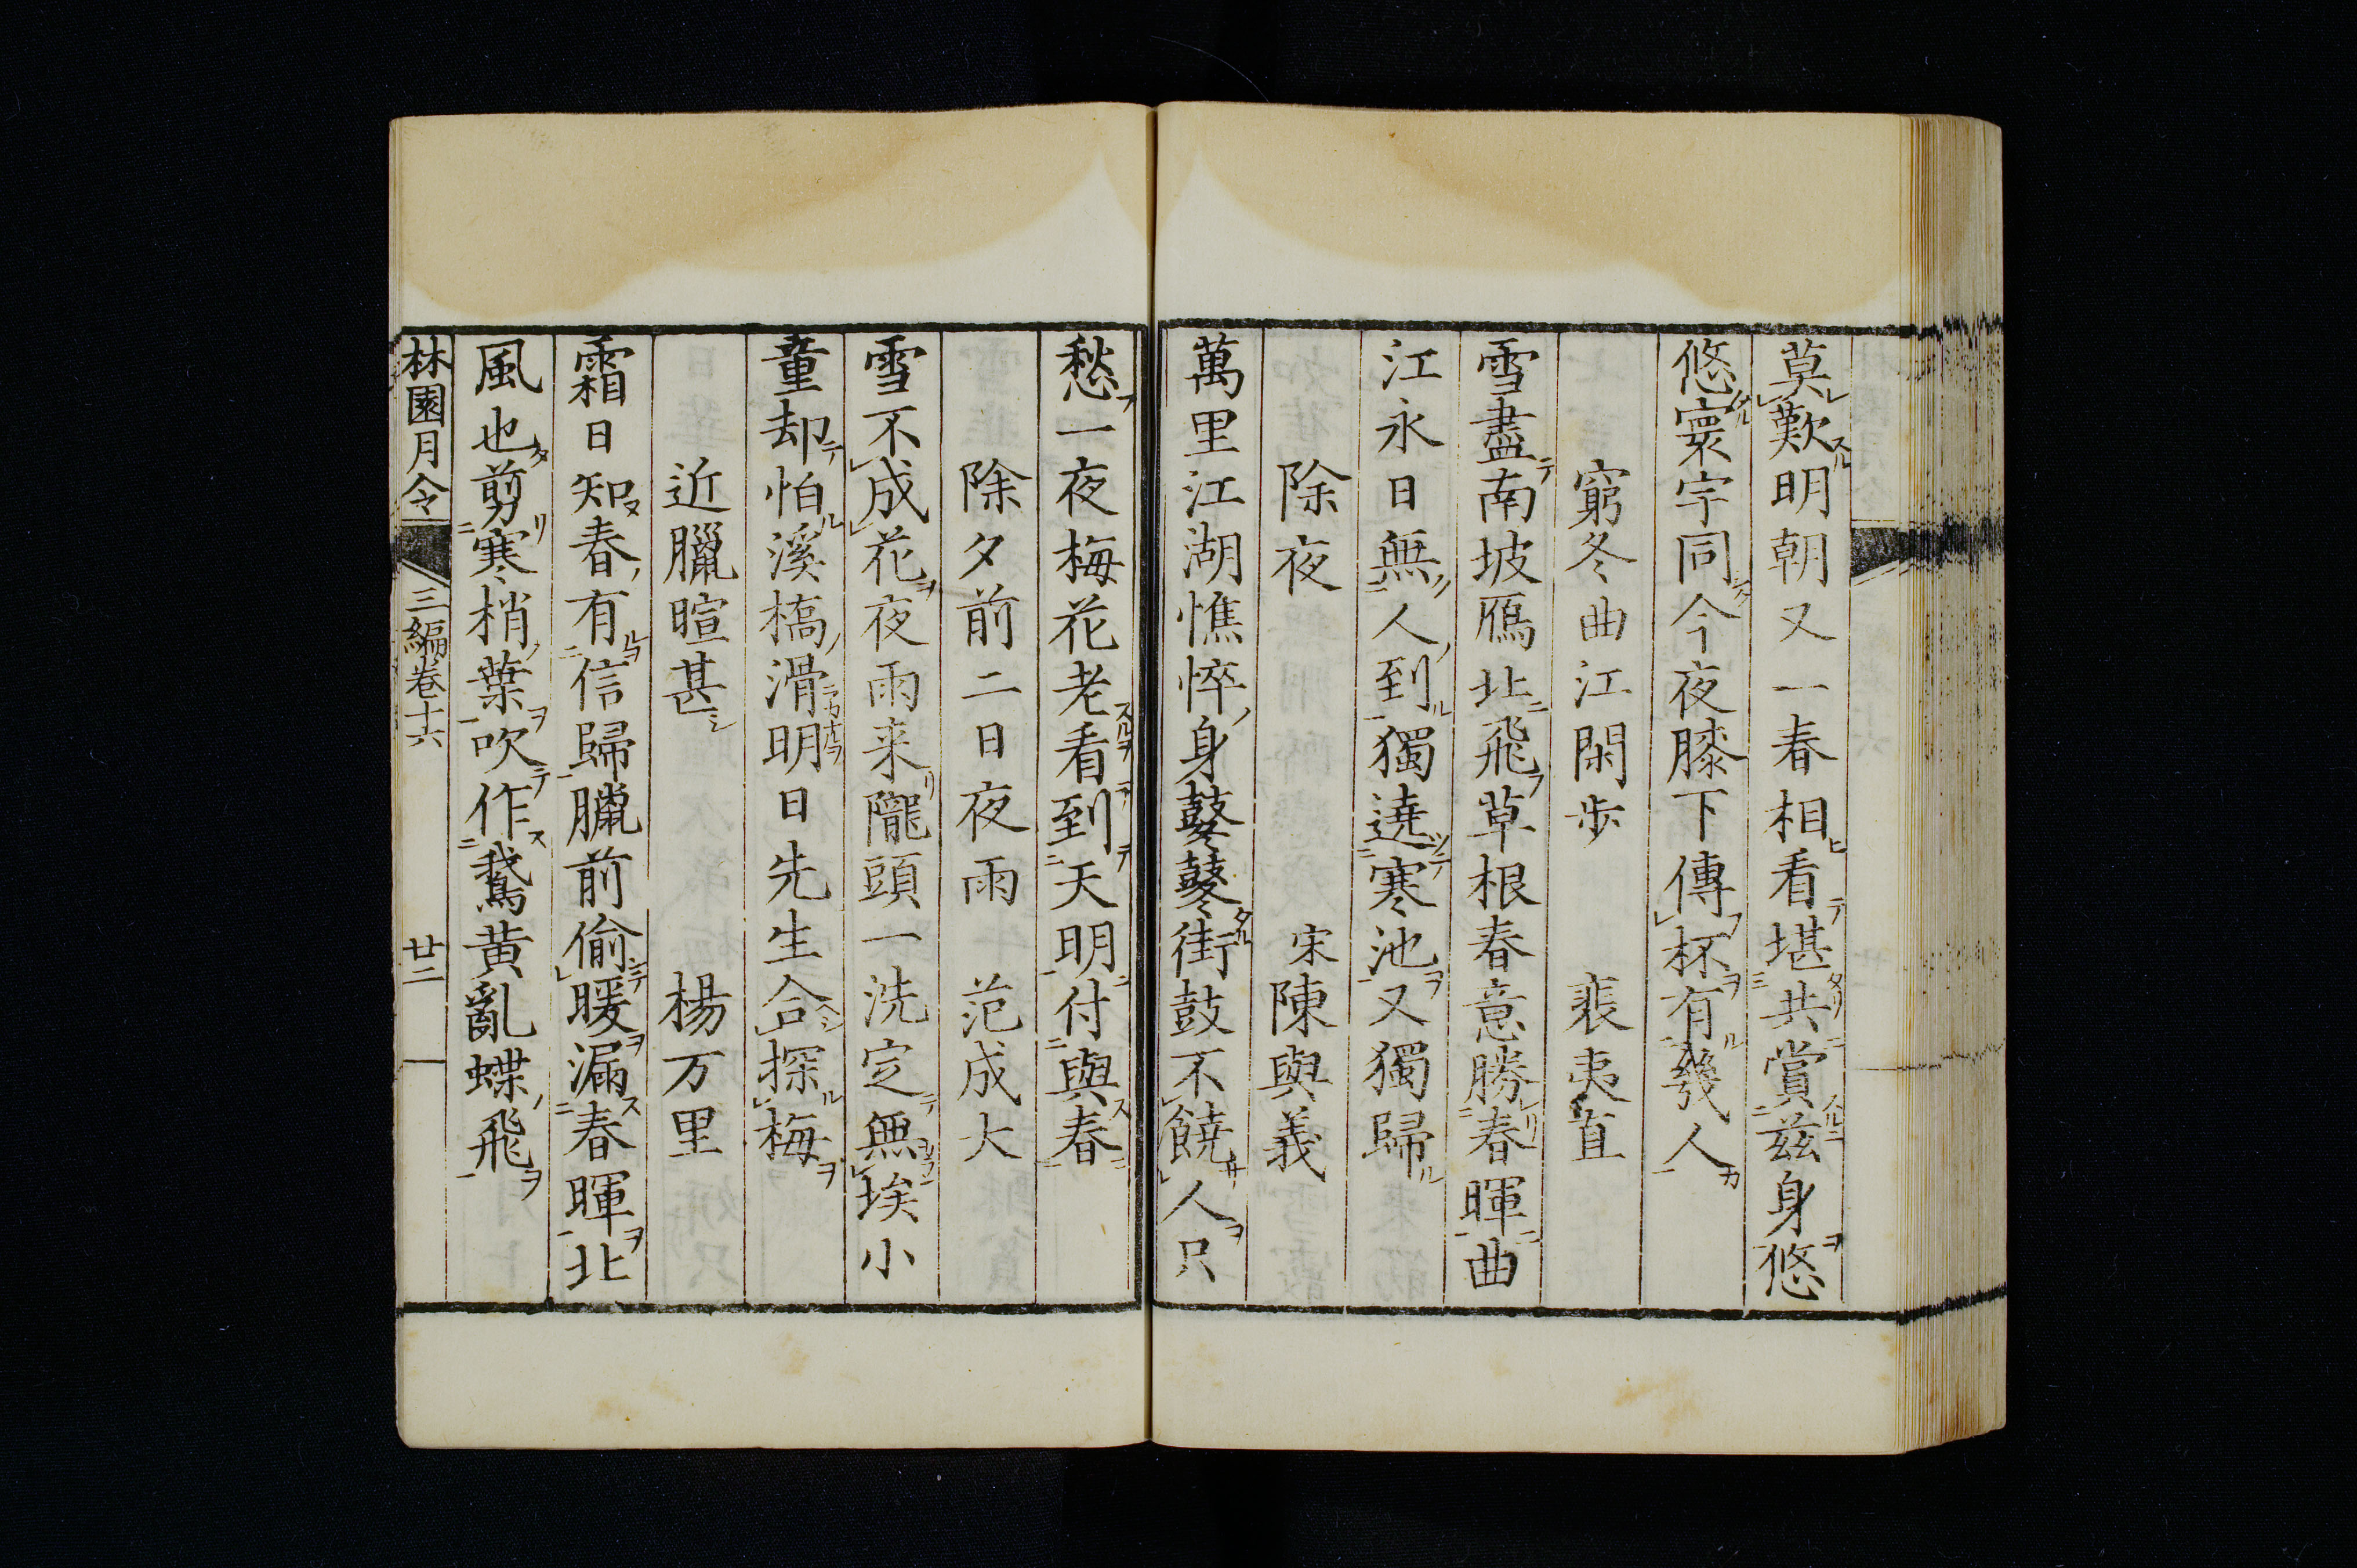 莫歎明朝又一春相看堪共賞茲身悠
悠寰宇同今夜膝下傳杯有幾人
窮冬曲江閑步　裴夷直
雪盡南坡鴈北飛草根春意勝春暉曲
江永日無人到獨遶寒池又獨歸
除夜　宋陳與義
萬里江湖憔悴身鼕鼕街鼓不饒人只
愁一夜梅花老看到天明付與春
除夕前二日夜雨　范成大
雪不成花夜雨来隴頭一洗定無埃小
童却怕溪橋滑明日先生合探梅
近臘暄甚　楊万里
霜日知春有信歸臘前偷暖漏春暉北
風也剪寒梢葉吹作鵞黄亂蝶飛
林園月令　三編卷十六　廿二